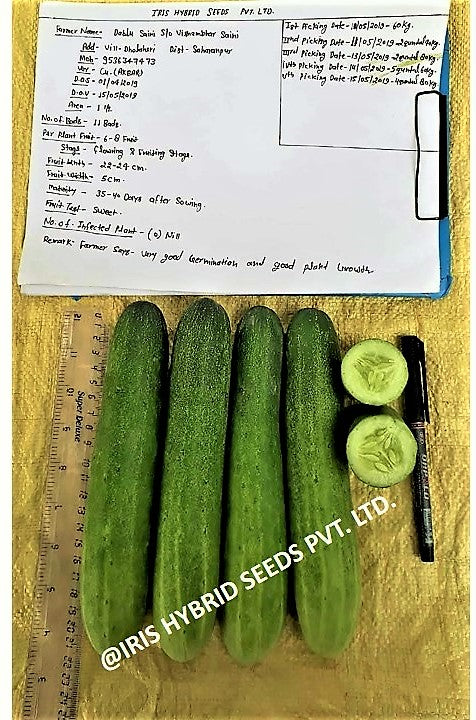 IRIS HYBRID SEEDS PVT. LTD.
Farmer Name- Dablu Saini S/o Vishambhar Saini
Add- Vill- Dholahari Dist- Saharanpur
Mob- 9536347473
Ver- Cu. (AKBAR)
D.O.S- 01/04/2019
D.O.V- 15/05/2019
Area- 1
No. of Beds- 11 Beds.
Per Plant Fruit- 6-8 Fruit
Stage- Flowring & Fruiting Stage.
Fruit Lenth- 22-24 cm.
Fruit Width- 5cm.
Maturity- 35-40 Days after Sowing.
Fruit Test- Sweet.
No. of. Infected Plant- (0) Nill
Remark- Farmer Says- Very good Germination and good plant Growth
Ist Picking Date- 10/05/2019- 60kg.
IInd picking Date-
IIIrd picking Date- 13/05/2019-
IVth Picking Date- 14/05/2019-
Vth Picking Date- 15/05/2019-
Super Deluxe
@IRIS HYBRID SEEDS PVT. LTD.